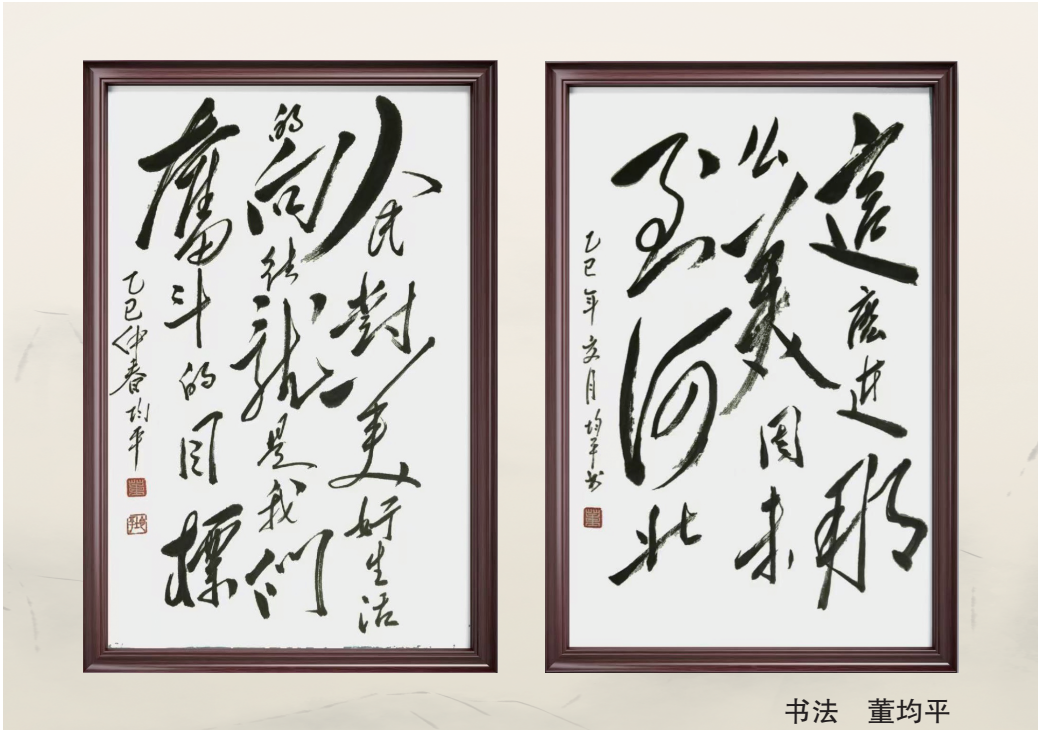 人民對美好生活
的向往就是我們
奮斗的目標
乙巳仲春均平
這麼近那
么美周末
到河北
乙巳年夏月均平书
董
书法　董均平